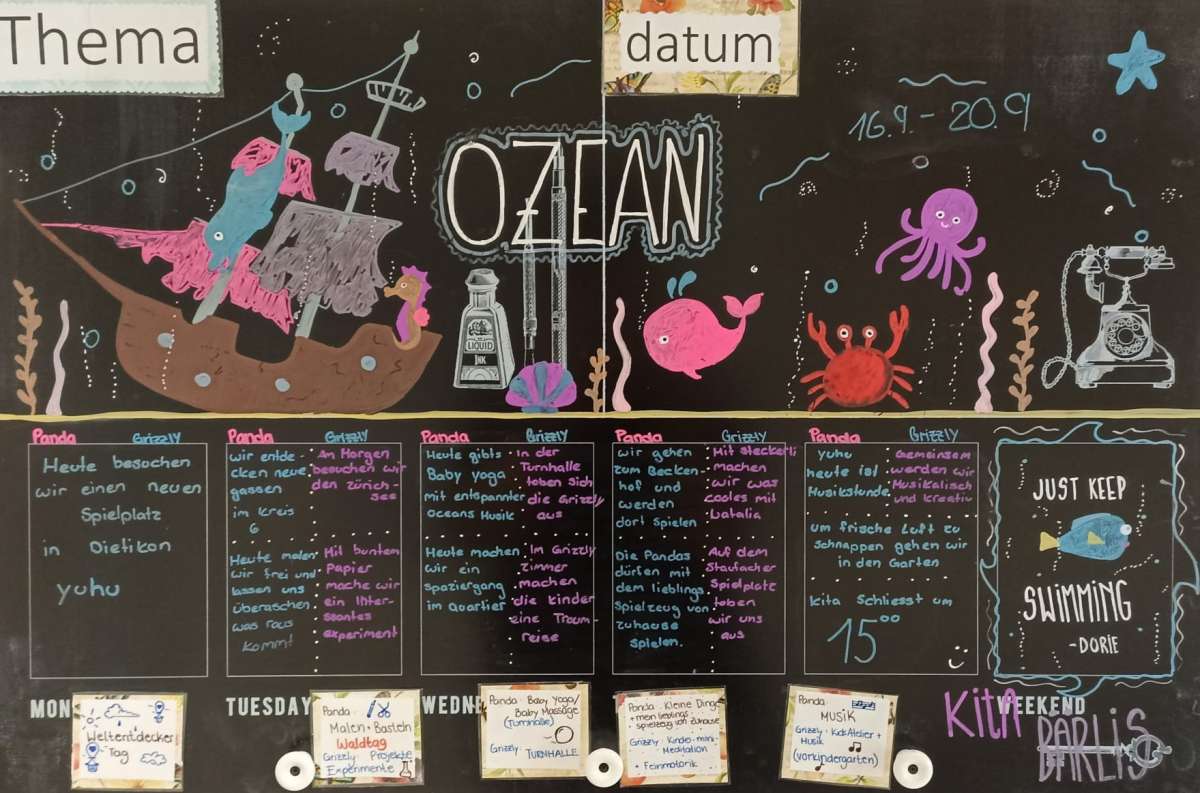 Thema
datum
16.9. - 20.9
OZEAN
LIQUID
INK
Panda Grizzly
Heute besuchen
wir einen neuen
Spielplatz
in Dietikon
yuhu
Panda Grizzly
wir entde-
cken neue
gassen
im Kreis
6
An Morgen
besuchen wir
den zürich-
see
Heute malen
wir frei und
lassen uns
überaschen
was raus
komm!
Mit buntem
Papier
mache wir
ein Inter-
ssantes
experiment
Panda Grizzly
Heute gibts
Baby yoga
mit entspannter
Oceans Musik
in der
Turnhalle
toben sich
die Grizzly
aus
Heute machen
wir ein
spaziergang
im Quartier
Im Grizzly
zimmer
machen
die kinder
eine Traum-
reise
Panda Grizzly
wir gehen
zum Becken-
hof und
werden
dort spielen
Mit steckerli
machen
wir was
cooles mit
Natalia
Die Pandas
dürfen mit
dem lieblings
Spielzeug von
zuhause
spielen.
Auf dem
Staufacher
Spielplatz
toben
wir uns
aus
Panda Grizzly
yuhu
heute ist
Musikstunde
Gemeinsam
werden wir
Musikalisch
und kreativ
um frische Luft zu
schnappen gehen wir
in den Garten
Kita Schliesst um
15⁰⁰
JUST KEEP
SWIMMING
-DORIE
MON
TUESDAY
WEDNE
WEEKEND
Weltentdecker
Tag
Panda:
Malen + Basteln
Waldtag
Grizzly: Projekte
Experimente
Panda: Baby Yoga/
Baby Massage
(Turnhalle)
Grizzly: TURNHALLE
Panda: Kleine Dinge
+ mein lieblings-
spielzeug von zuhause
Grizzly: Kinder-mini-
Meditation
+ Feinmotorik
Panda:
MUSIK
Grizzly: KidsAtelier +
Musik
(vorkindergarten)
KITA
BARLIS